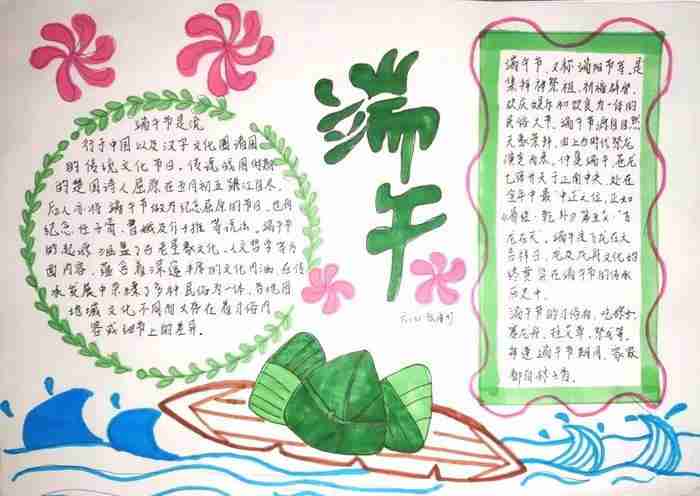 端午节是流
行于中国以及汉字文化圈诸国
的传统文化节日，传说战国时期
的楚国诗人屈原在五月初五跳江自尽，
后人亦将端午节做为纪念屈原的节日，也有
纪念伍子胥、曹娥及介子推等说法，端午节
的起源涵盖了古老星象文化、人文哲学等方
面内容，蕴含着深邃丰厚的文化内涵，在传
承发展中杂糅了多种民俗为一体，各地因
地域文化不同而又存在着习俗内
容或细节上的差异。
端午
端午节，又称端阳节等，是
集拜神祭祖，祈福辟邪，
欢庆娱乐和饮食为一体的
民俗大节，端午节源自自然
天象崇拜，由上古时代祭龙
演变而来，仲夏端午，苍龙
七宿升天于正南中央，处在
全年中最中正之位，正如
《易经·乾卦》第五爻："飞
龙在天"，端午是飞龙在天
吉祥日，龙及龙舟文化的
终贯穿在端午节的传承
历史中。
端午节的习俗有：吃粽子，
赛龙舟，挂艾草，
每逢端午节期间，家家
都